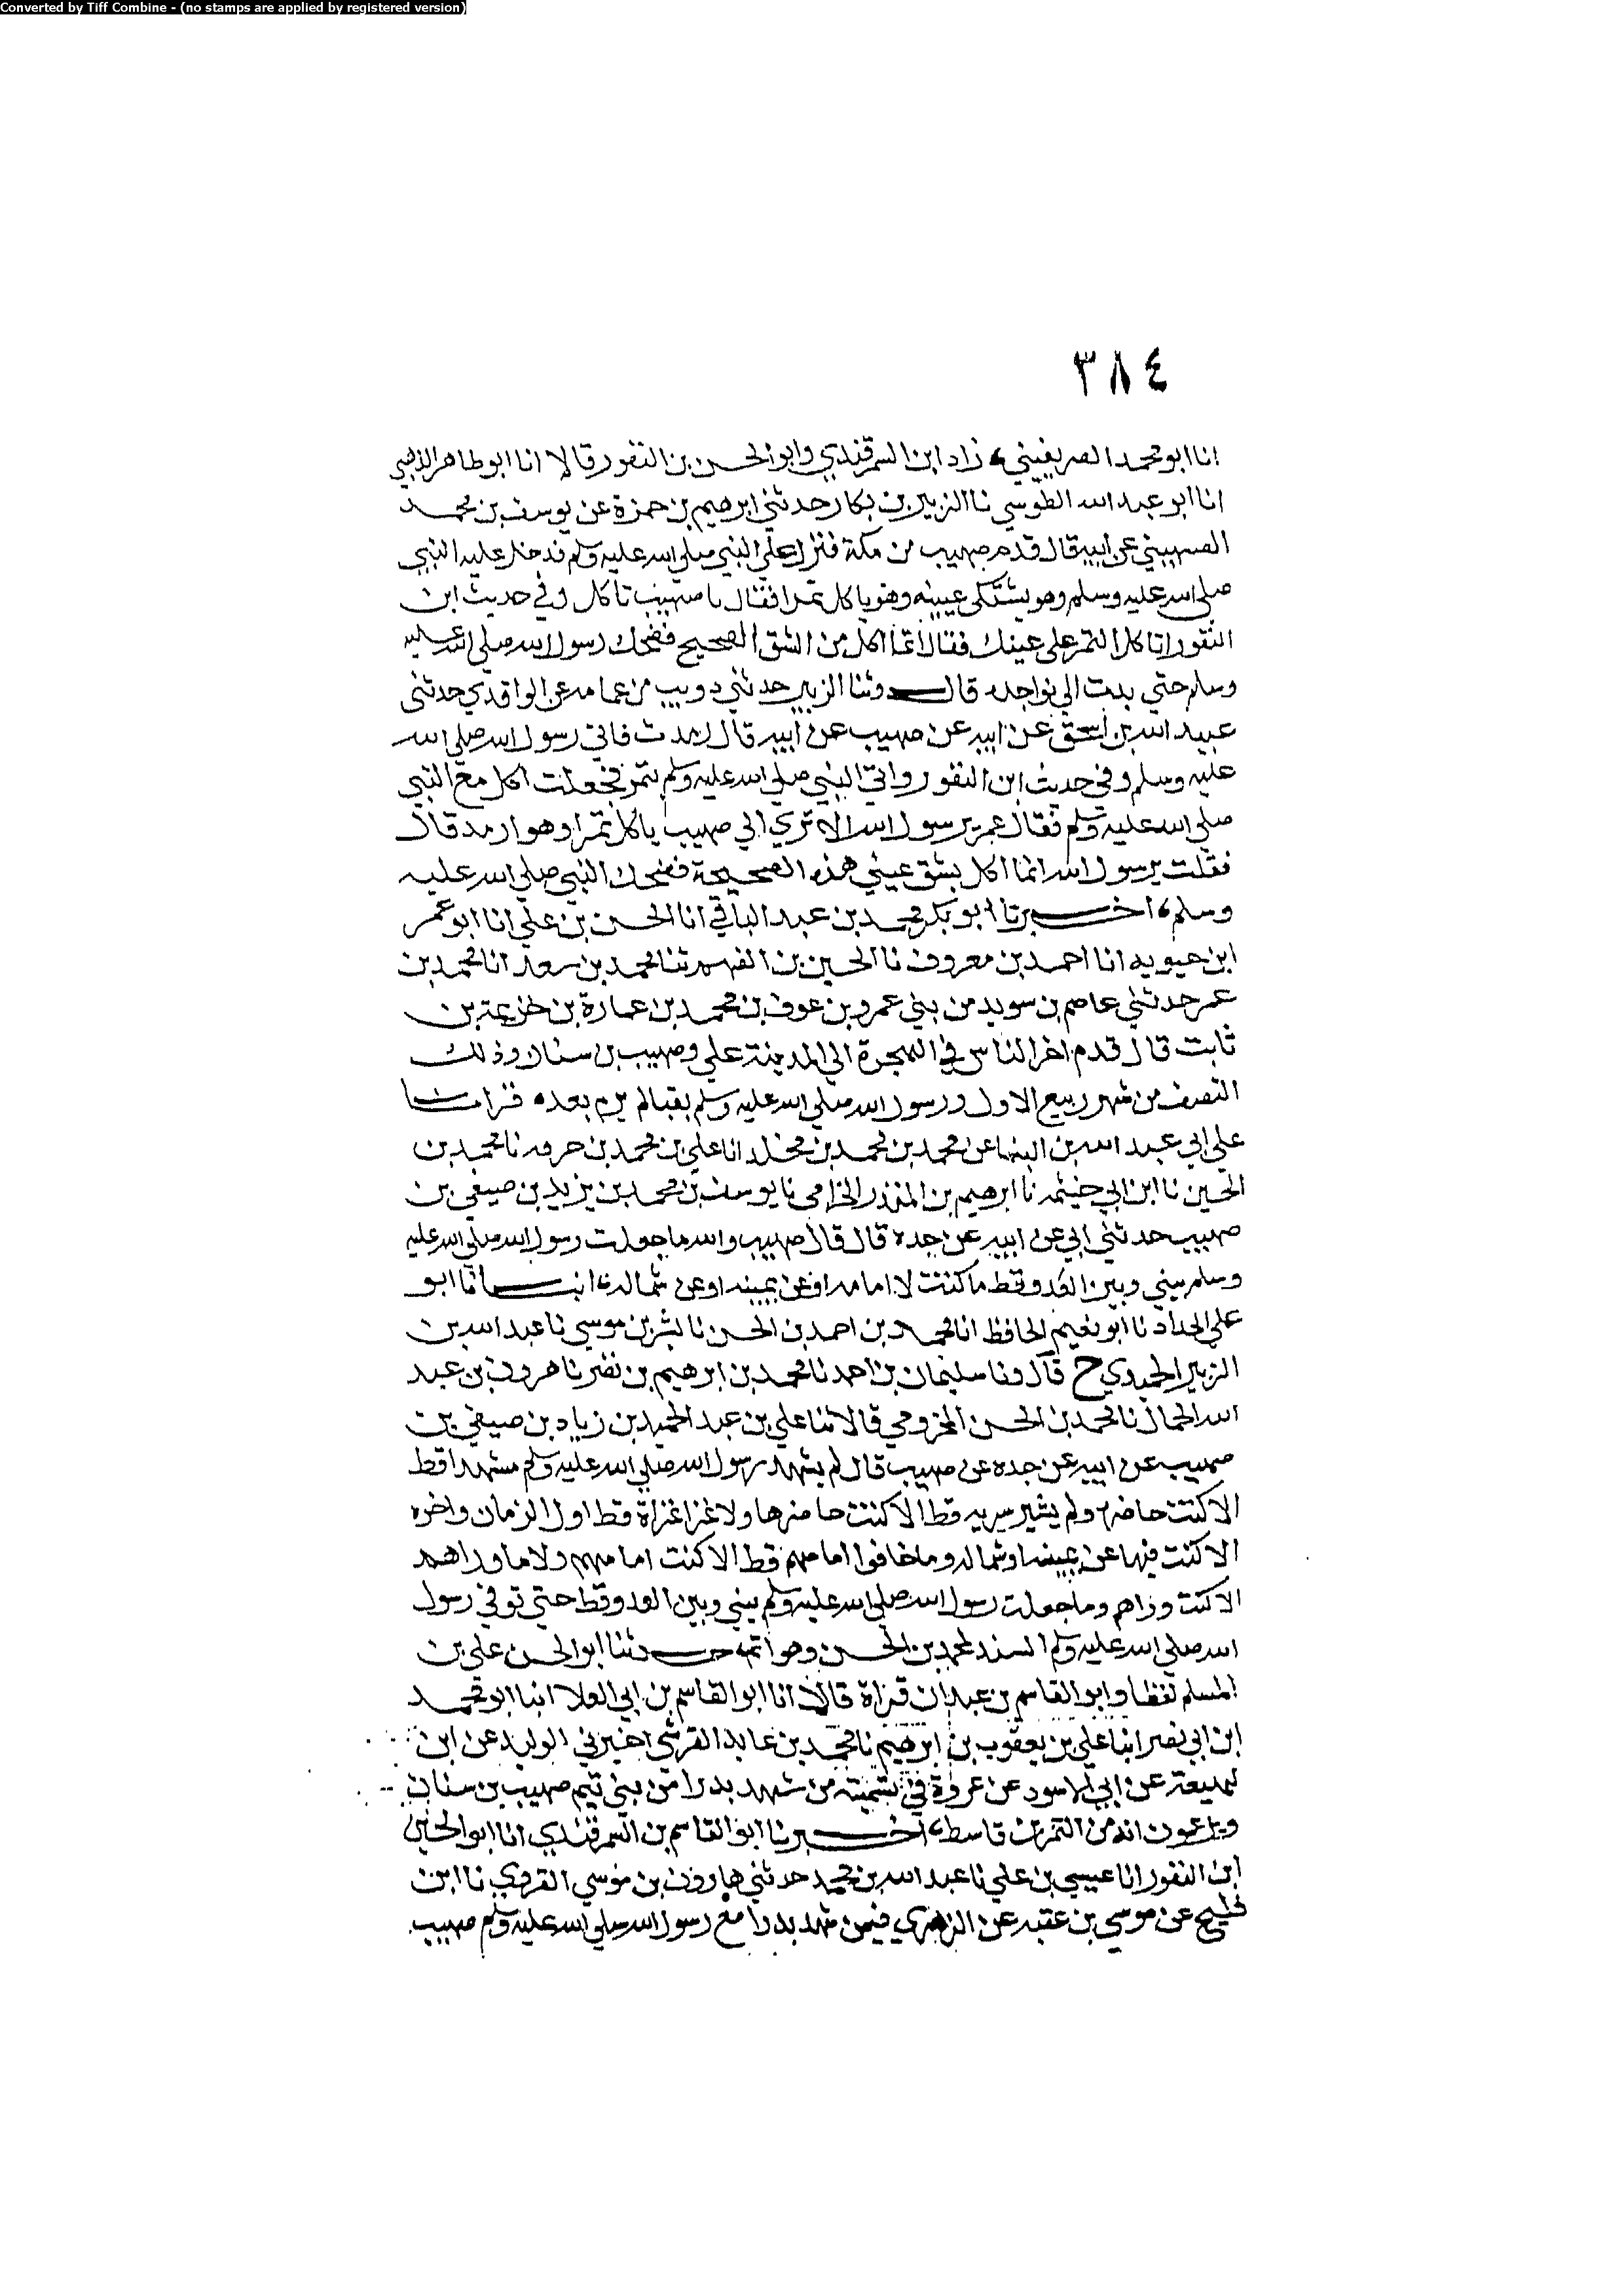 Converted by Tiff Combine - (no stamps are applied by registered version)
٣٨٤
انا ابو محمد الصريفيني، زاد ابن السمرقندي وابو الحسن بن النقور قالا انا ابو طاهر الذهبي
انا ابو عبد الله الطوسي نا الزبير بن بكار حدثني ابرهيم بن حمزة عن يوسف بن محمد
الصهيبي عن ابيه قال قدم صهيب من مكة فنزل علي النبي صلي الله عليه وسلم فدخل عليه النبي
صلى الله عليه وسلم وهو يشتكي عينيه وهو ياكل تمرا فقال يا صهيب تاكل وفي حديث ابن
النقور اتاكل التمر على عينك فقال انما اكل من الشق الصحيح فضحك رسول الله صلي الله عليه
وسلم حتي بدت الي نواجده قال وثنا الزبير حدثني دويب من عمامه عن الواقدي حدثني
عبيد الله بن اسحق عن ابيه عن صهيب عن ابيه قال رمدت فاتي رسول الله صلي الله
عليه وسلم وفي حديث ابن النقور واتي النبي صلي الله عليه وسلم بتمر فجعلت اكل مع النبي
صلي الله عليه وسلم فقال عمر يرسول الله الا تري الي صهيب ياكل تمرا وهو ارمد قال
فقلت يرسول الله انما اكل بشق عيني هذه الصحيحة فضحك النبي صلي الله عليه
وسلم، اخبرنا ابو بكر محمد بن عبد الباقي انا الحسن بن علي انا ابو عمر
ابن حيويه انا احمد بن معروف نا الحسين بن الفهم ثنا محمد بن سعد انا محمد بن
عمر حدثني عاصم بن سويد من بني عمرو بن عوف بن محمد بن عمارة بن خزيمة بن
ثابت قال قدم اخر الناس في الهجرة الي المدينة علي وصهيب بن سنان وذلك
النصف من شهر ربيع الاول ورسول الله صلي الله عليه وسلم بقبا لم يرم بعده قرات
على ابي عبد الله بن البنا عن محمد بن محمد بن مخلد انا علي بن محمد بن خزفه نا محمد بن
الحسين نا ابن ابي خيثمه نا ابرهيم بن المنذر الحزامي نا يوسف بن محمد بن يزيد بن صيفي بن
صهيب حدثني ابي عن ابيه عن جده قال قال صهيب والله ما جعلت رسول الله صلي الله عليه
وسلم بيني وبين العدو قط ما كنت الا امامه او عن يمينه او عن شماله، انبانا ابو
علي الحداد نا ابو نعيم الحافظ انا محمد بن احمد بن الحسن نا بشر بن موسي نا عبد الله بن
الزبير الحميدي ح قال ونا سليمان بن احمد نا محمد بن ابرهيم بن نصر نا هرون بن عبد
الله الحمال نا محمد بن الحسن المخزومي قالا ثنا علي بن عبد الحميد بن زياد بن صيفي بن
صهيب عن ابيه عن جده عن صهيب قال لم يشهد رسول الله صلي الله عليه وسلم مشهدا قط
الا كنت حاضره ولم يسير سريه قط الا كنت حاضرها ولا غزا غزاة قط اول الزمان واخره
الا كنت فيها عن يمينه او شماله وما خافوا امامهم قط الا كنت امامهم ولا ما وراهم
الا كنت وراهم وما جعلت رسول الله صلي الله عليه وسلم بيني وبين العدو قط حتي توفي رسول
الله صلي الله عليه وسلم السند لمحمد بن الحسن وهو اتم، حدثنا ابو الحسن علي بن
المسلم لفظا وابو القاسم بن عبدان قراة قالا انا ابو القاسم بن ابي العلا انبا ابو محمد
ابن ابي نصر انبا علي بن يعقوب بن ابرهيم نا محمد بن عايذ القرشي اخبرني الوليد عن ابن
لهيعة عن ابي الاسود عن عروة في تسمية من شهد بدرا من بني تيم صهيب بن سنان
ويزعمون انه من النمر بن قاسط، اخبرنا ابو القاسم بن السمرقندي انا ابو الحسين
ابن النقور انا عيسي بن علي نا عبد الله بن محمد حدثني هارون بن موسي الفروي نا ابن
فليح عن موسي بن عقبه عن الزهري فيمن شهد بدرا مع رسول الله صلي الله عليه وسلم صهيب